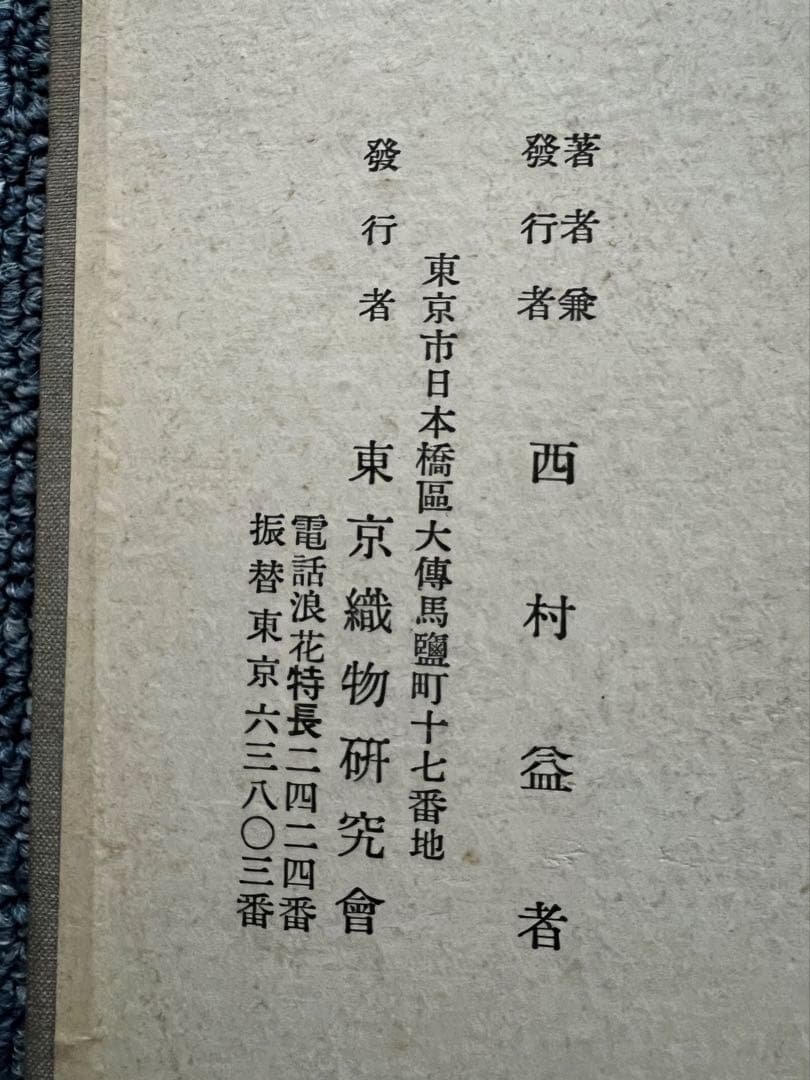 著者兼
發行者
西村益者
東京市日本橋區大傳馬鹽町十七番地
發行者
東京織物研究會
電話浪花特長二四二四番
振替東京六三八〇三番